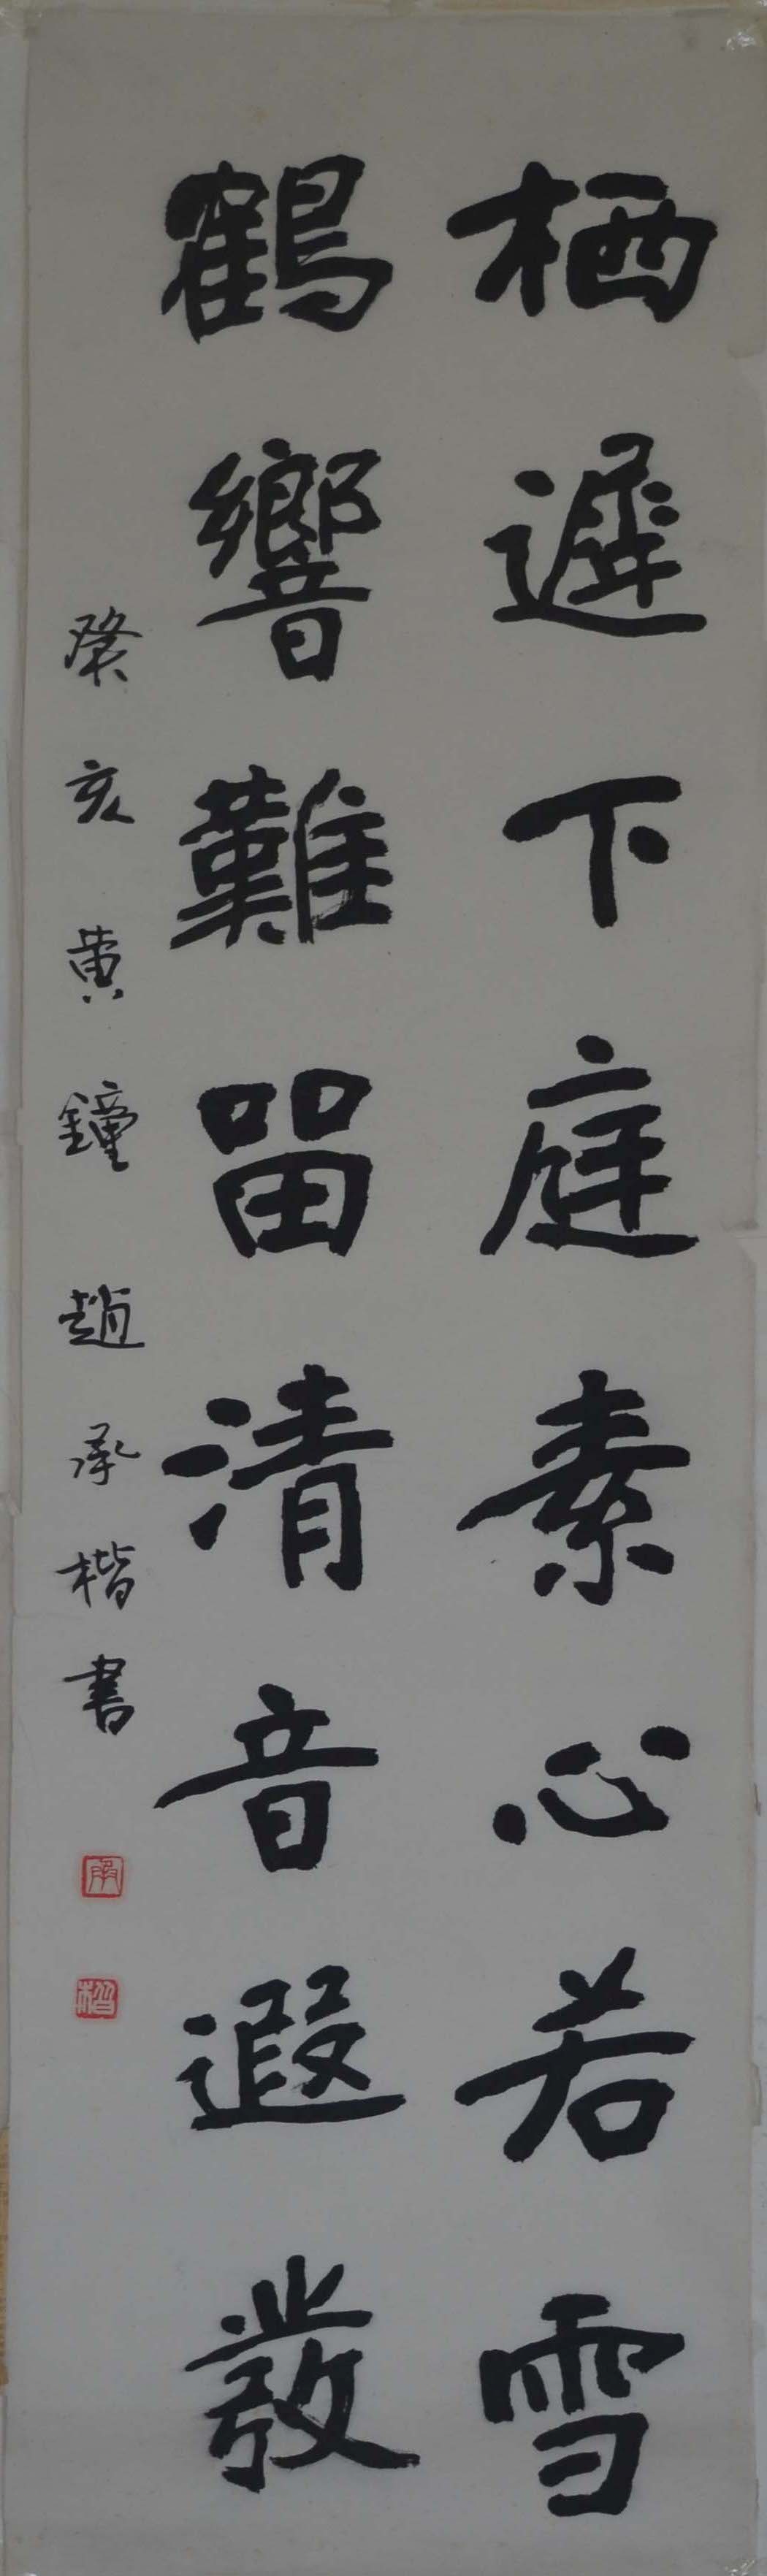 栖遲下庭素心若雪
鶴響難留清音遐發
癸亥黄鐘趙承楷書
承
楷